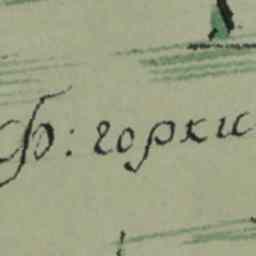 ф: горки